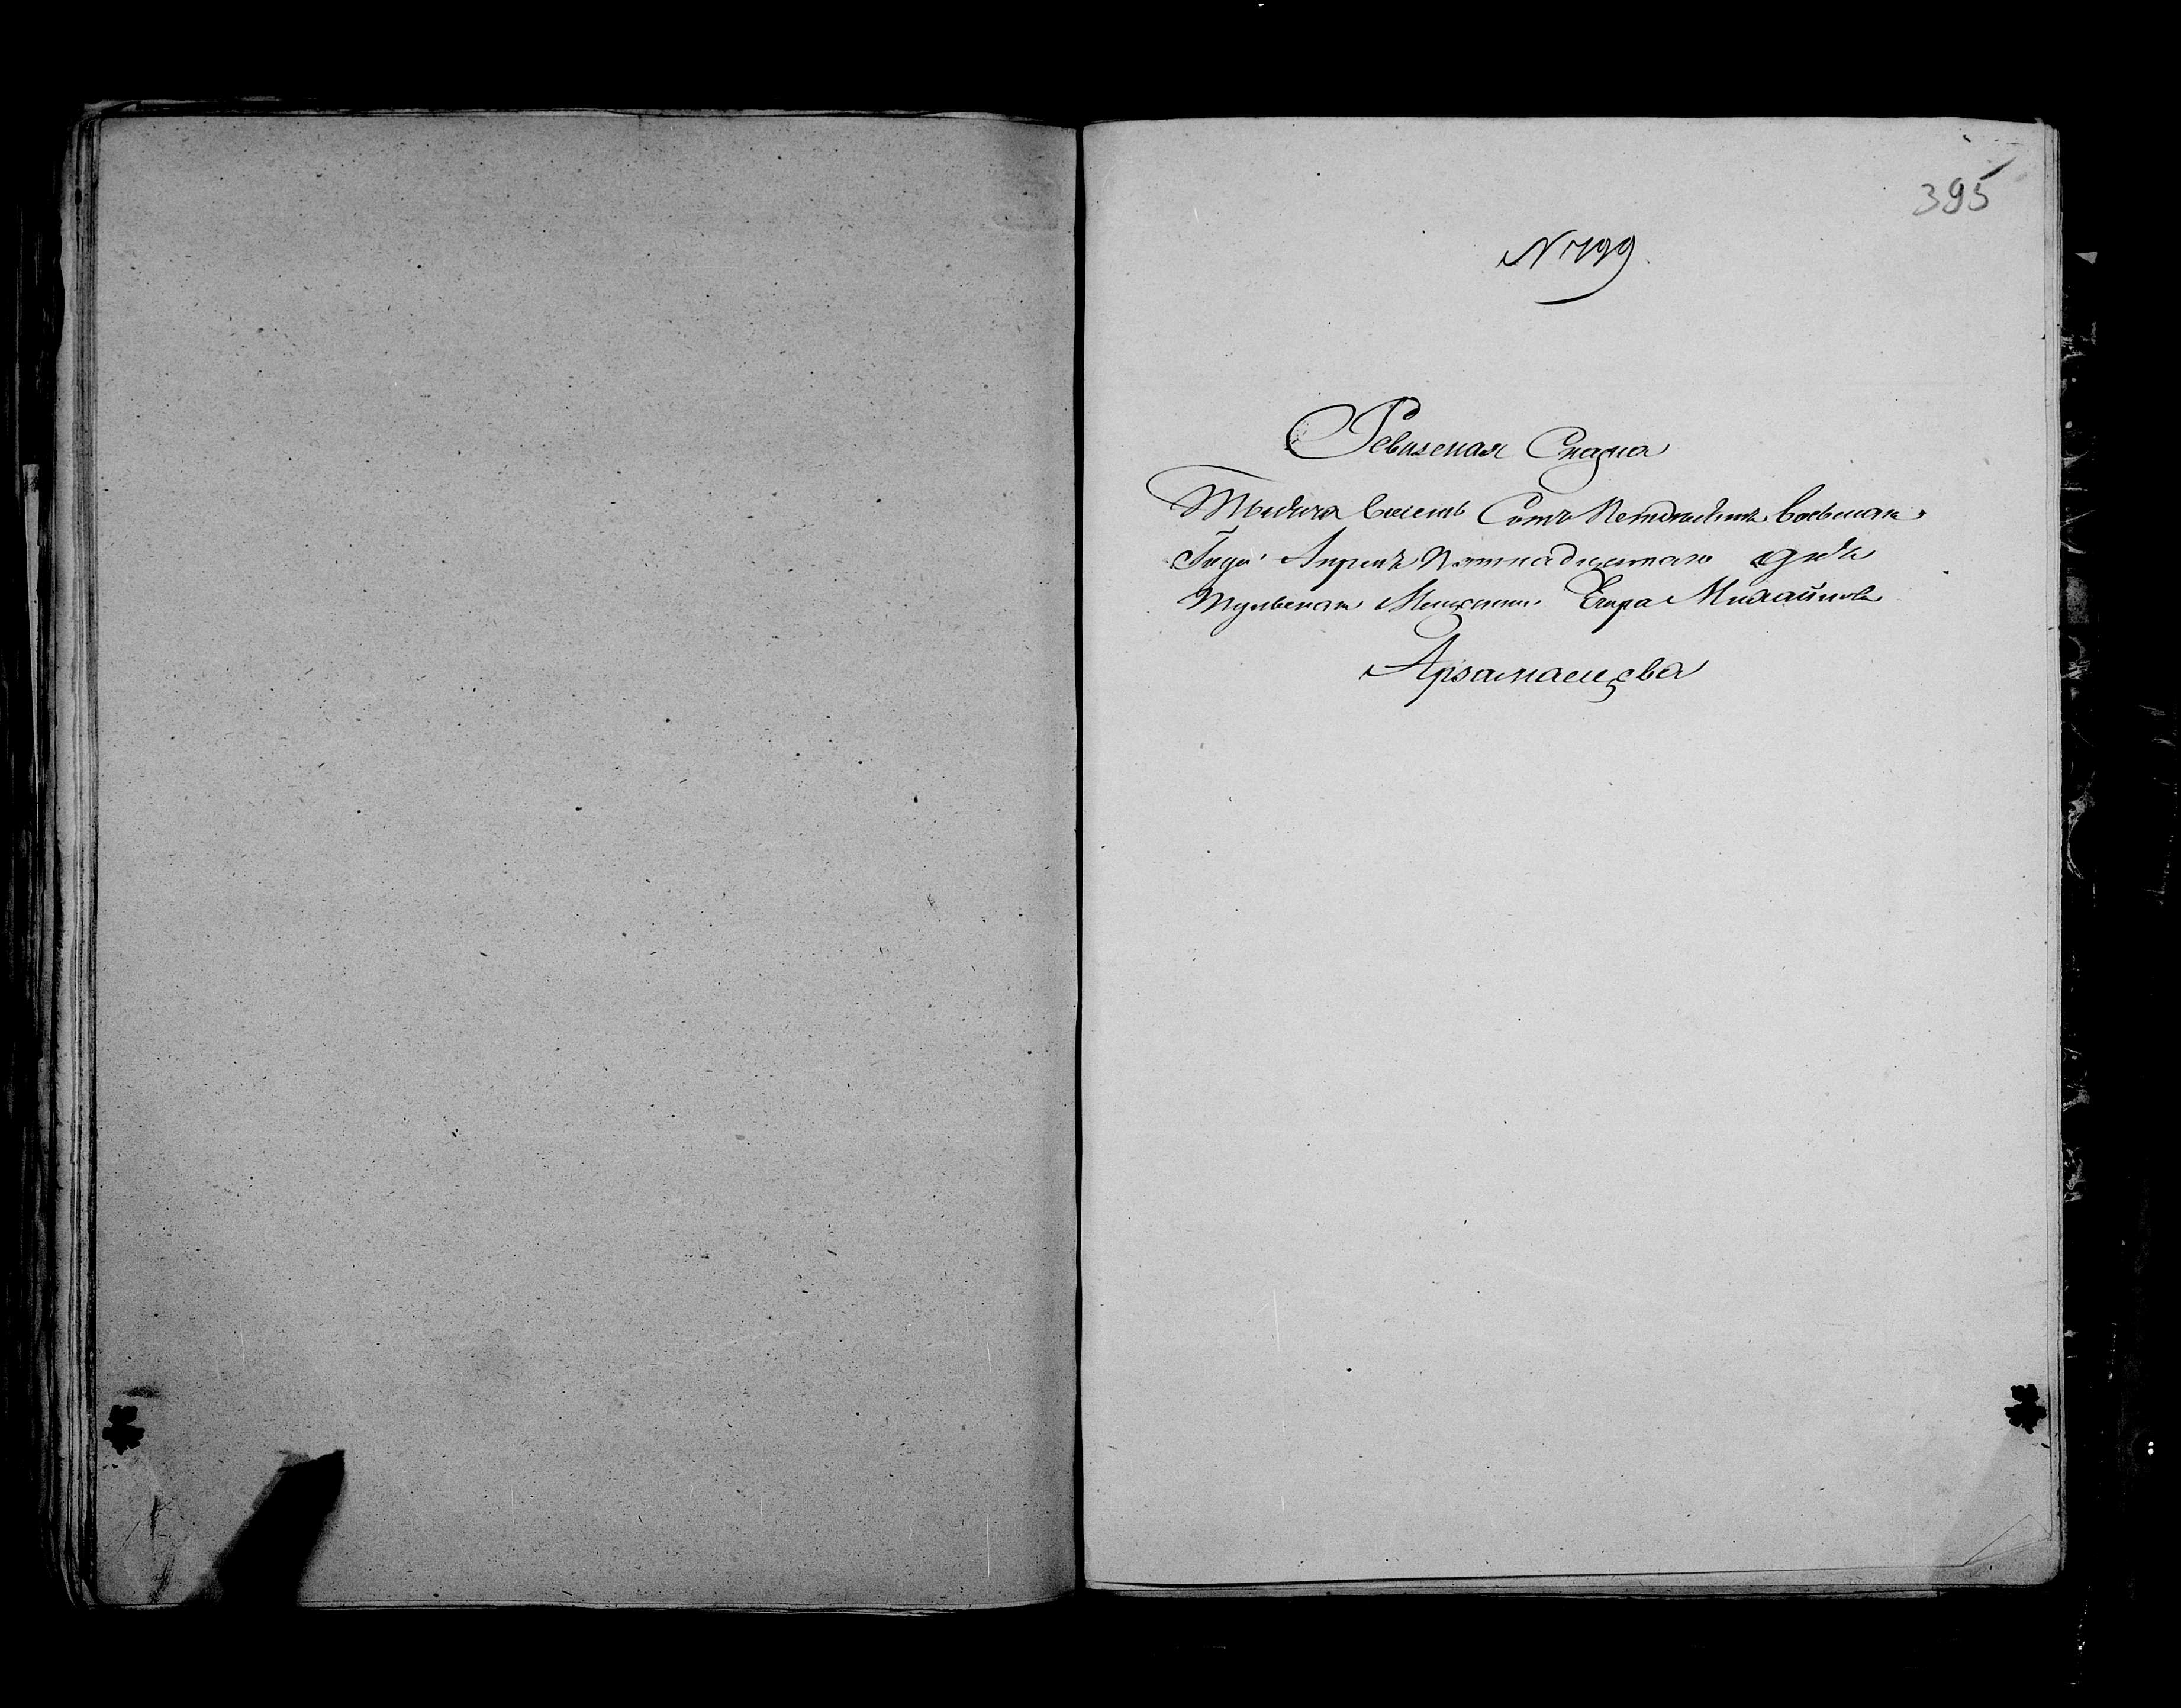 395
N 799
Ревизская Сказка
Тысяча Восемь Сотъ Петдесятъ Восьмаго
Года Апреля Пятнадцатаго дня
Тульскаго Мещанина Егора Михайлова
Арзамасцева